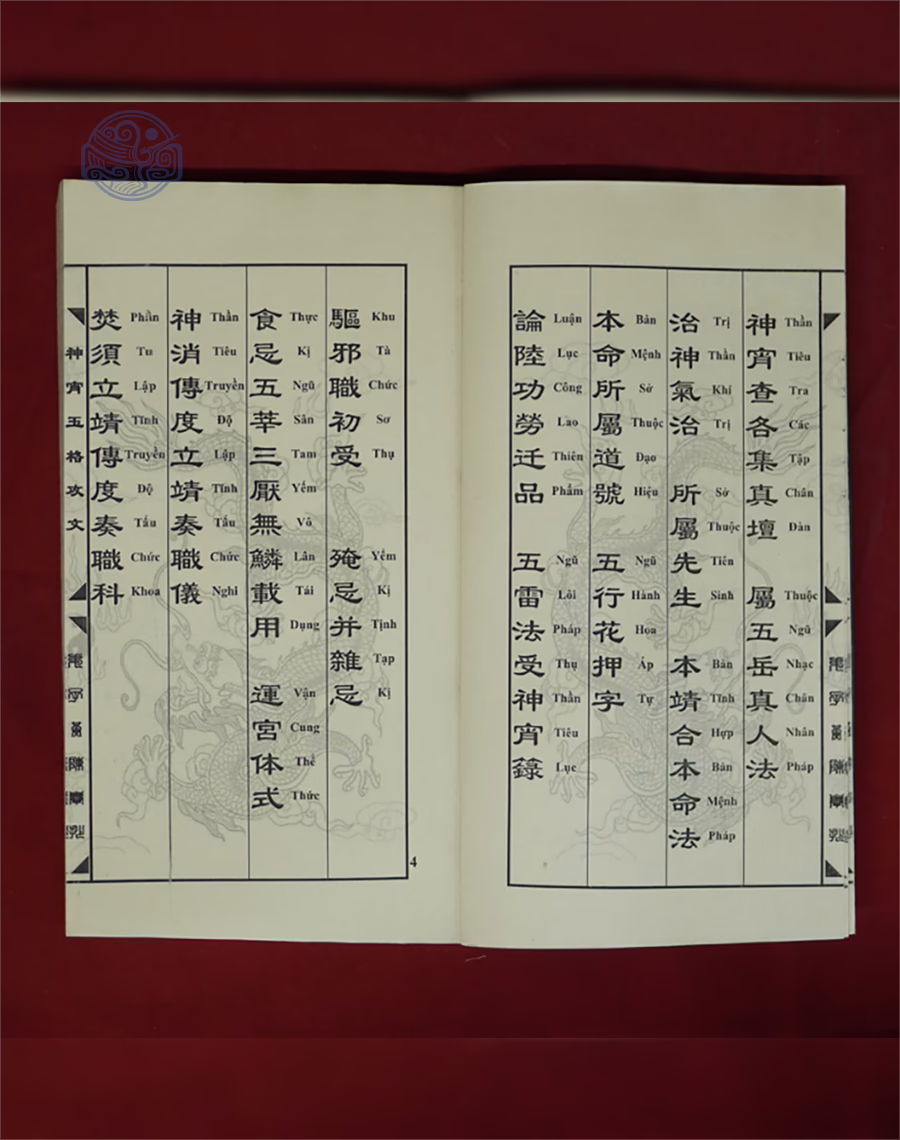 神宵查各集真壇 屬五岳真人法
Thần Tiêu Tra Các Tập Chân Đàn Thuộc Ngũ Nhạc Chân Nhân Pháp
治神氣治 所屬先生 本靖合本命法
Trị Thần Khí Trị Sở Thuộc Tiên Sinh Bản Tĩnh Hợp Bản Mệnh Pháp
本命所屬道號 五行花押字
Bản Mệnh Sở Thuộc Đạo Hiệu Ngũ Hành Hoa Áp Tự
論陸功勞迁品 五雷法受神宵籙
Luận Lục Công Lao Thiên Phẩm Ngũ Lôi Pháp Thụ Thần Tiêu Lục
驅邪職初受 殗忌并雜忌
Khu Tà Chức Sơ Thụ Yếm Kị Tịnh Tạp Kị
食忌五荤三厭無鱗載用 運宮体式
Thực Kị Ngũ Sân Tam Yếm Vô Lân Tái Dụng Vận Cung Thể Thức
神消傳度立靖奏職儀
Thần Tiêu Truyền Độ Lập Tĩnh Tấu Chức Nghi
焚須立靖傳度奏職科
Phần Tu Lập Tĩnh Truyền Độ Tấu Chức Khoa
神宵玉格攻文
4